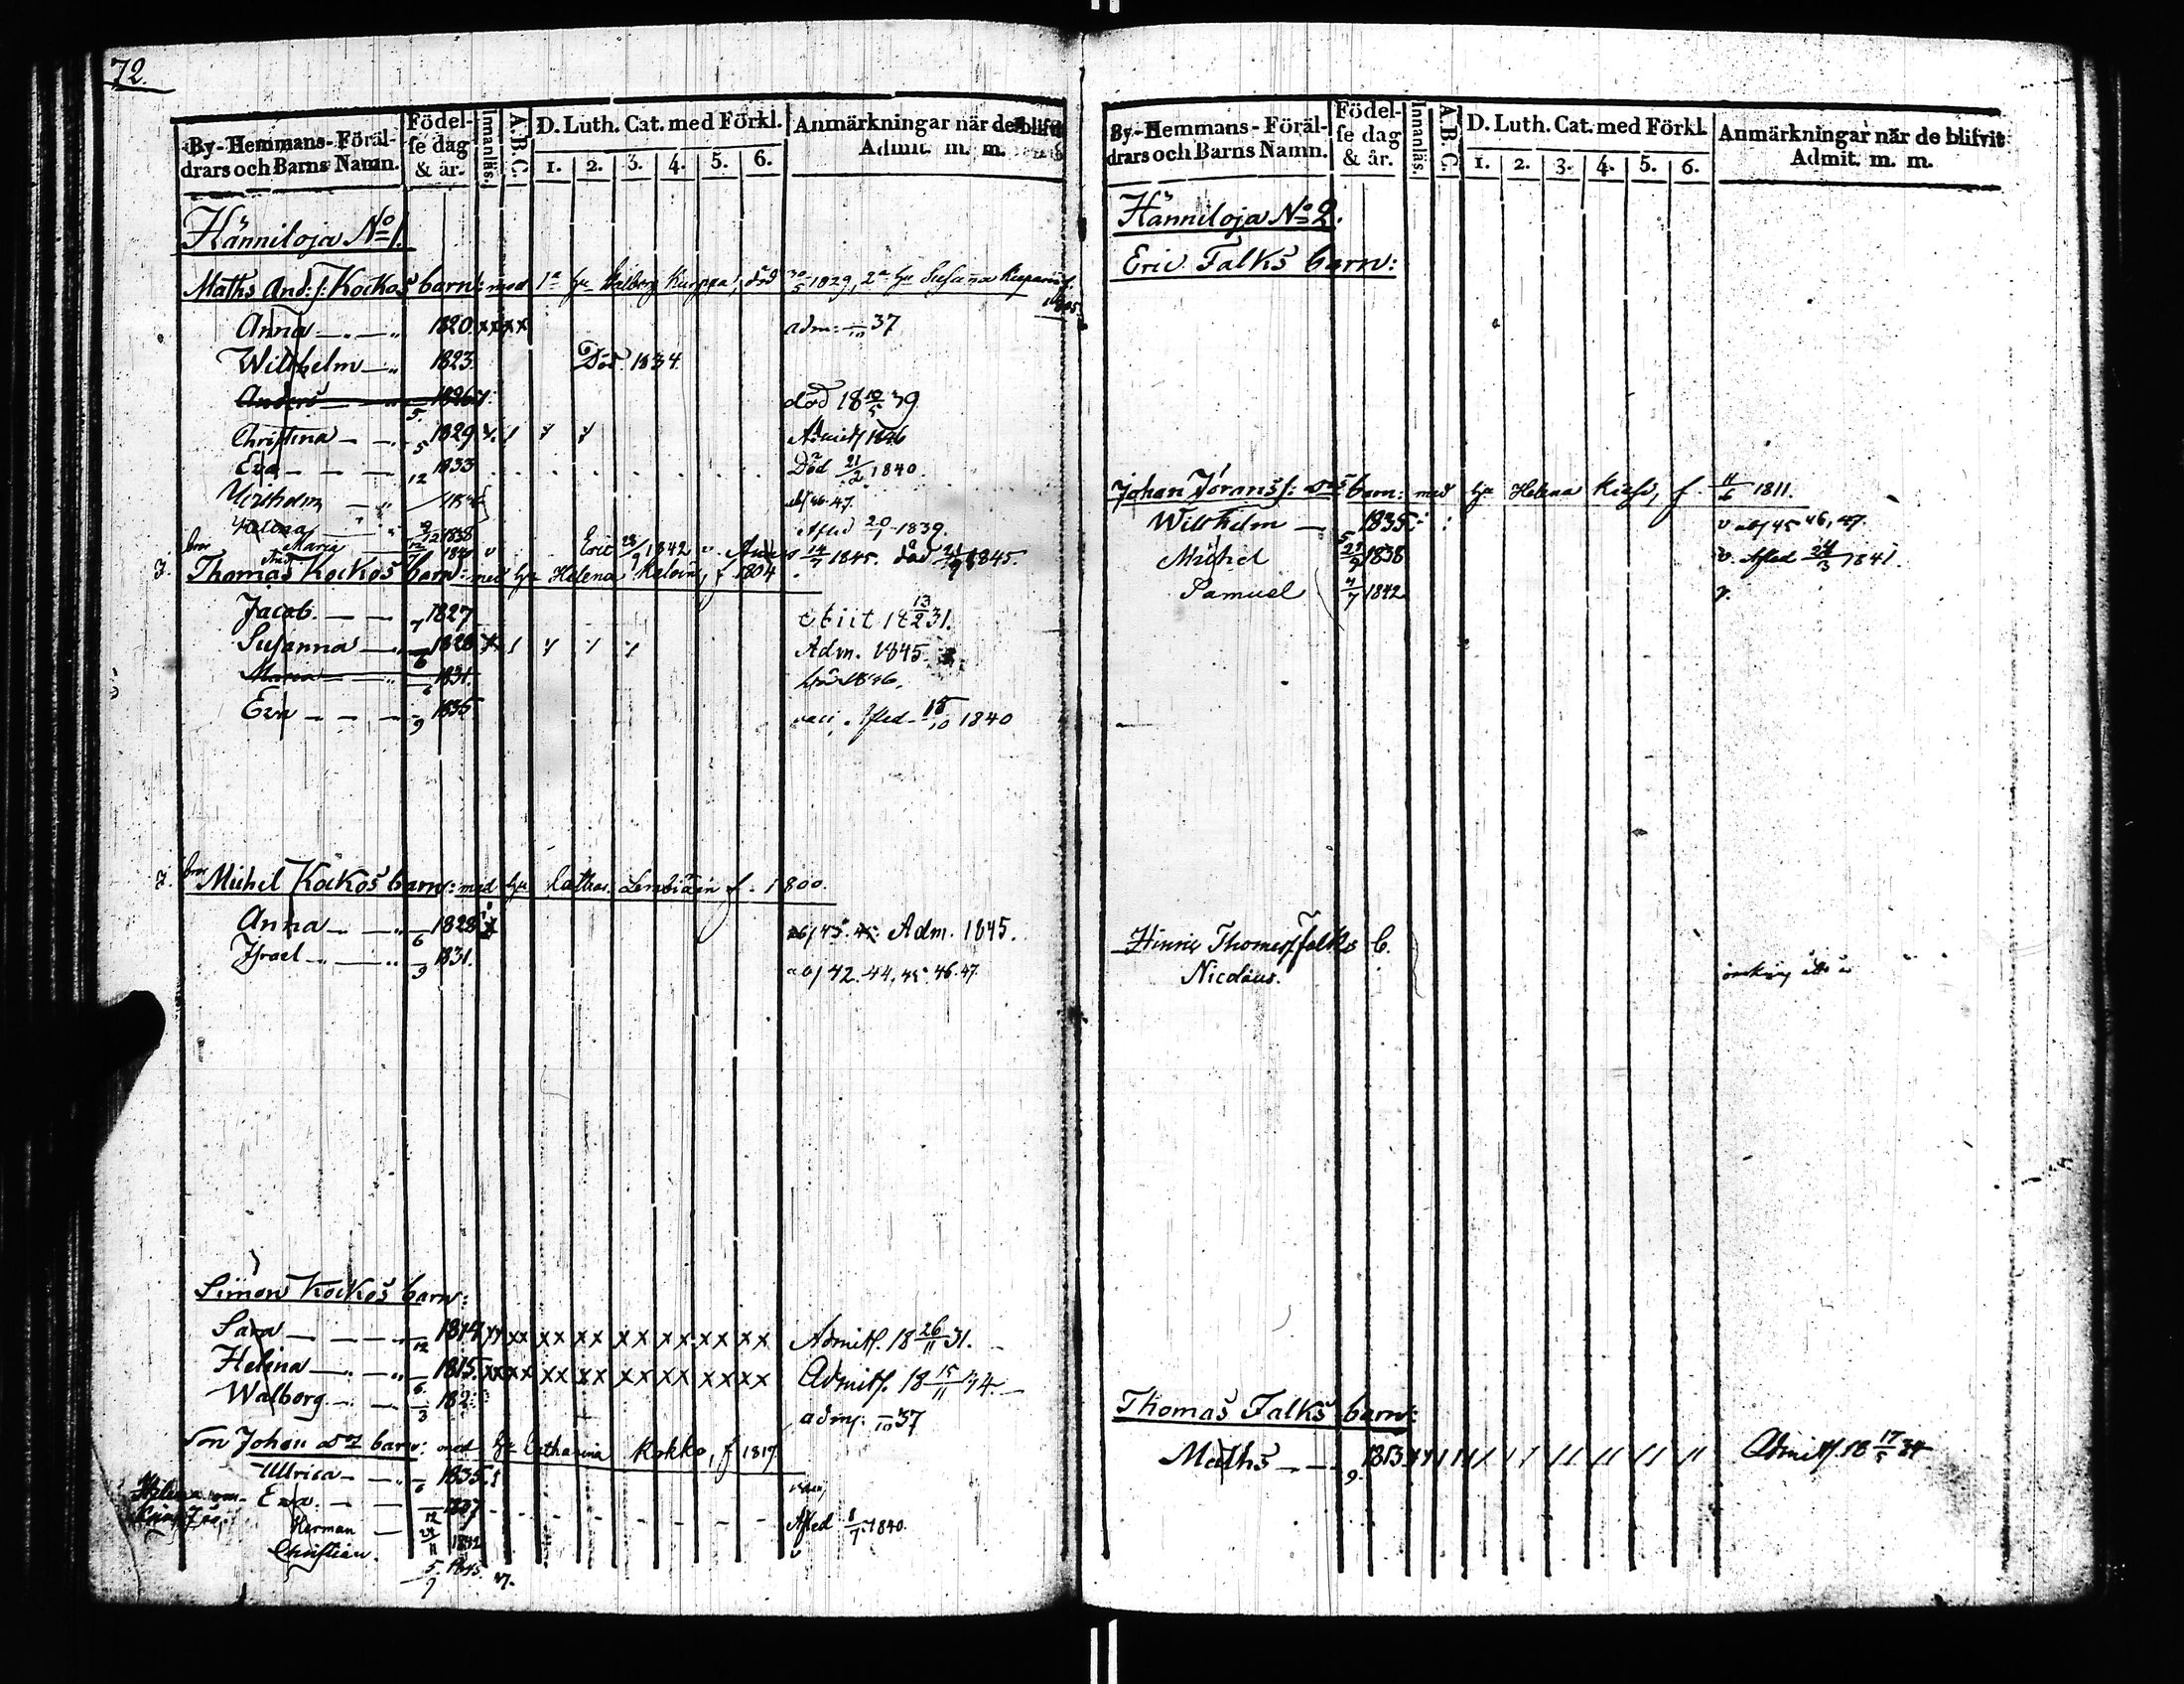 72.
By-Hemmans-Föräl-drars och Barns Namn. Födel-se dag & år. Innanläs. A.B.C. D. Luth. Cat. med Förkl. 1. 2. 3. 4. 5. 6. Anmärkningar när de blifvit Admit. m. m.
Hänniloja No 1.
Maths And: s: Kockos barn: med 1a hu Walborg Kurppa, död 30/5 1829, 2a hu Susanna
Anna 1820. xxxx adm: /10 37
Wilhelm 1823. Död 1834.
Anders 1826 död 18 10/5 39
Christina /5 1829 Admitt 1846
Eva /12 1833 Död 21/2 1840.
46-47.
Helena 1838 Afled 20/1 1839.
Maria Eric 23/9 1842 v. 14/7 1845. död 21/9 1845.
bror
3. Thomas Kockos barn: med hu Helena f. 1804
Jacob /7 1827 obiit 18 13/2 31.
Susanna /6 1828 Adm. 1845.
Maria /6 1831. 1846.
Eva /9 1835 vaci. Afled 15/10 1840
bror
7. Michel Kockos barn: med hu Cathar. f. 1800.
Anna /6 1828 ab/43. Adm. 1845.
Israel /9 1831. ab/42. 44. 45. 46. 47.
Simon Kockos barn:
Sara /12 1814 xx xx xx xx xx xx xx xx Admitt. 18 26/11 31.
Helena /6 1815. xx xx xx xx xx xx xx xx Admitt. 18 15/11 34.
Walborg /3 182 adm: /10 37
Son Johan dos barn: med hu Catharina Kokko, f 1817
Ullrica /6 1835.
Eva. /12 1837 Afled 8/7 1840.
Herman 24/11 1842 v
Christian. 5/9 1845.
By-Hemmans-Föräl-drars och Barns Namn. Födel-se dag & år. Innanläs. A.B.C. D. Luth. Cat. med Förkl. 1. 2. 3. 4. 5. 6. Anmärkningar när de blifvit Admit. m. m.
Hänniloja No 2.
Eric Falks barn:
Johan Jöranss: dos barn: med hu Helena f. 11/6 1811.
Wilhelm /5 1835 v ab/45 46, 47.
Michel 29/9 1838 v. Afled 24/3 1841.
Samuel 4/7 1842 v.
Hinric Thomess falks b.
Nicolaus.
Thomas Falks barn:
Maths /9 1813 Admitt. 18 17/5 34